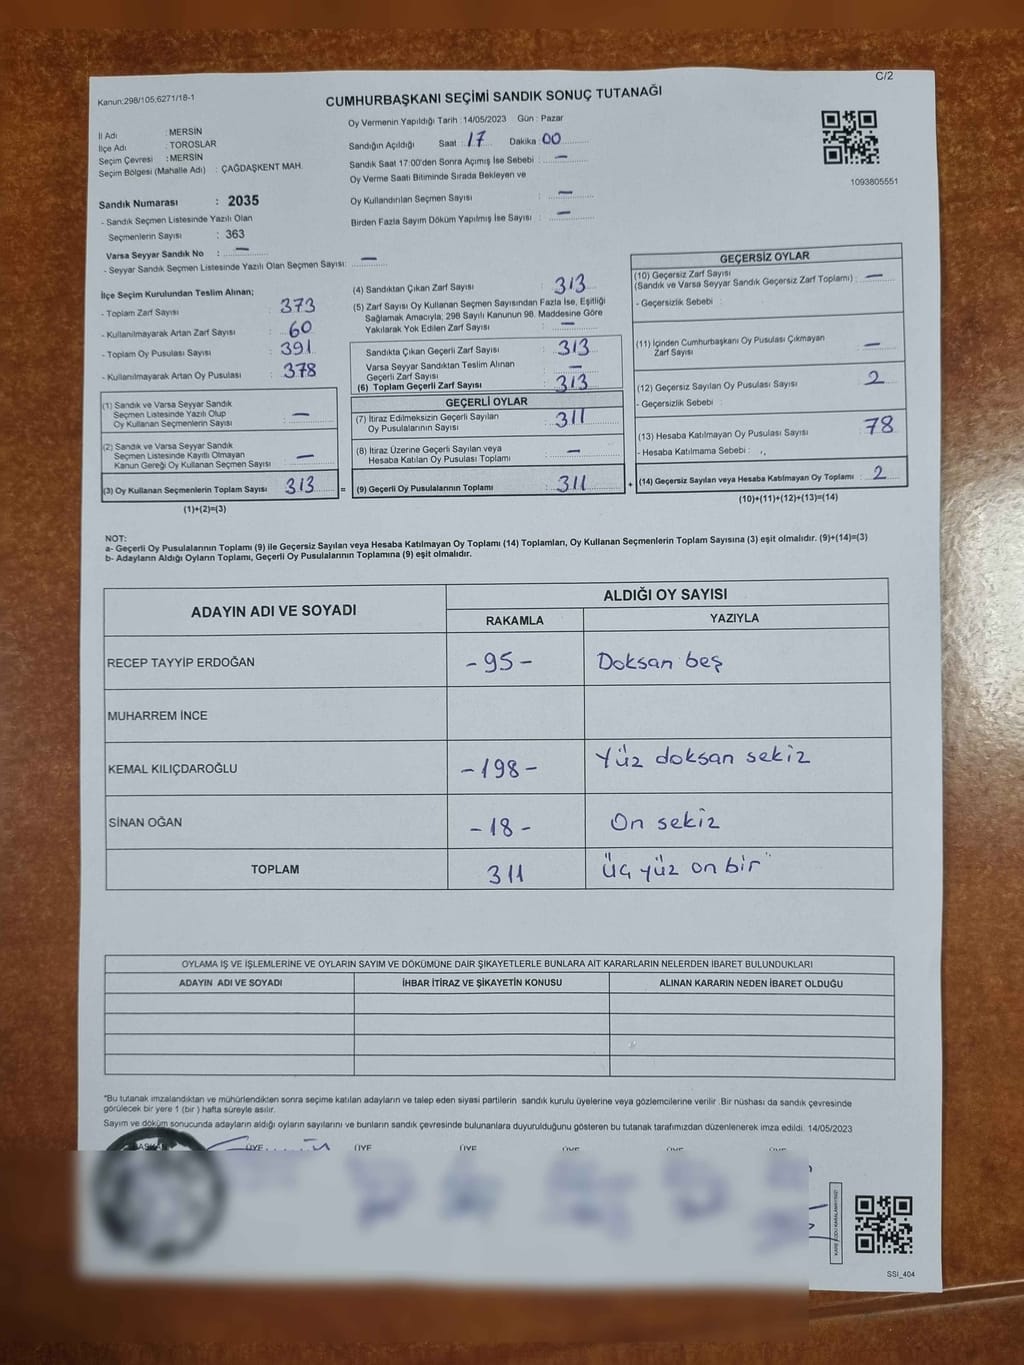 C/2
Kanun:298/105;6271/18-1
CUMHURBAŞKANI SEÇİMİ SANDIK SONUÇ TUTANAĞI
İl Adı : MERSİN
İlçe Adı : TOROSLAR
Seçim Çevresi : MERSİN
Seçim Bölgesi (Mahalle Adı) : ÇAĞDAŞKENT MAH.
Sandık Numarası : 2035
- Sandık Seçmen Listesinde Yazılı Olan
Seçmenlerin Sayısı : 363
Varsa Seyyar Sandık No : —
- Seyyar Sandık Seçmen Listesinde Yazılı Olan Seçmen Sayısı: —
Oy Vermenin Yapıldığı Tarih :14/05/2023 Gün : Pazar
Sandığın Açıldığı Saat : 17 Dakika : 00
Sandık Saat 17:00'den Sonra Açımış İse Sebebi : —
Oy Verme Saati Bitiminde Sırada Bekleyen ve
Oy Kullandırılan Seçmen Sayısı : —
Birden Fazla Sayım Döküm Yapılmış İse Sayısı : —
1093805551
İlçe Seçim Kurulundan Teslim Alınan;
- Toplam Zarf Sayısı : 373
- Kullanılmayarak Artan Zarf Sayısı : 60
- Toplam Oy Pusulası Sayısı : 391
- Kullanılmayarak Artan Oy Pusulası : 378
(1) Sandık ve Varsa Seyyar Sandık
Seçmen Listesinde Yazılı Olup
Oy Kullanan Seçmenlerin Sayısı : —
(2) Sandık ve Varsa Seyyar Sandık
Seçmen Listesinde Kayıtlı Olmayan
Kanun Gereği Oy Kullanan Seçmen Sayısı : —
(3) Oy Kullanan Seçmenlerin Toplam Sayısı : 313 =
(1)+(2)=(3)
(4) Sandıktan Çıkan Zarf Sayısı : 313
(5) Zarf Sayısı Oy Kullanan Seçmen Sayısından Fazla İse, Eşitliği
Sağlamak Amacıyla; 298 Sayılı Kanunun 98. Maddesine Göre
Yakılarak Yok Edilen Zarf Sayısı : —
Sandıkta Çıkan Geçerli Zarf Sayısı : 313
Varsa Seyyar Sandıktan Teslim Alınan
Geçerli Zarf Sayısı : —
(6) Toplam Geçerli Zarf Sayısı : 313
GEÇERLİ OYLAR
(7) İtiraz Edilmeksizin Geçerli Sayılan
Oy Pusulalarının Sayısı : 311
(8) İtiraz Üzerine Geçerli Sayılan veya
Hesaba Katılan Oy Pusulası Toplamı : —
(9) Geçerli Oy Pusulalarının Toplamı : 311 +
GEÇERSİZ OYLAR
(10) Geçersiz Zarf Sayısı
(Sandık ve Varsa Seyyar Sandık Geçersiz Zarf Toplamı) : —
- Geçersizlik Sebebi :
(11) İçinden Cumhurbaşkanı Oy Pusulası Çıkmayan
Zarf Sayısı : —
(12) Geçersiz Sayılan Oy Pusulası Sayısı : 2
- Geçersizlik Sebebi :
(13) Hesaba Katılmayan Oy Pusulası Sayısı : 78
- Hesaba Katılmama Sebebi :
(14) Geçersiz Sayılan veya Hesaba Katılmayan Oy Toplamı : 2
(10)+(11)+(12)+(13)=(14)
NOT:
a- Geçerli Oy Pusulalarının Toplamı (9) ile Geçersiz Sayılan veya Hesaba Katılmayan Oy Toplamı (14) Toplamları, Oy Kullanan Seçmenlerin Toplam Sayısına (3) eşit olmalıdır. (9)+(14)=(3)
b- Adayların Aldığı Oyların Toplamı, Geçerli Oy Pusulalarının Toplamına (9) eşit olmalıdır.
ADAYIN ADI VE SOYADI ALDIĞI OY SAYISI
RAKAMLA YAZIYLA
RECEP TAYYİP ERDOĞAN -95- Doksan beş
MUHARREM İNCE
KEMAL KILIÇDAROĞLU -198- Yüz doksan sekiz
SİNAN OĞAN -18- On sekiz
TOPLAM 311 "üç yüz on bir"
OYLAMA İŞ VE İŞLEMLERİNE VE OYLARIN SAYIM VE DÖKÜMÜNE DAİR ŞİKAYETLERLE BUNLARA AİT KARARLARIN NELERDEN İBARET BULUNDUKLARI
ADAYIN ADI VE SOYADI İHBAR İTİRAZ VE ŞİKAYETİN KONUSU ALINAN KARARIN NEDEN İBARET OLDUĞU
*Bu tutanak imzalandıktan ve mühürlendikten sonra seçime katılan adayların ve talep eden siyasi partilerin sandık kurulu üyelerine veya gözlemcilerine verilir .Bir nüshası da sandık çevresinde
görülecek bir yere 1 (bir ) hafta süreyle asılır.
Sayım ve döküm sonucunda adayların aldığı oyların sayılarını ve bunların sandık çevresinde bulunanlara duyurulduğunu gösteren bu tutanak tarafımızdan düzenlenerek imza edildi. 14/05/2023
ÜYE ÜYE ÜYE ÜYE ÜYE ÜYE
KARE KODU KARALAMAYINIZ!
SSİ_404